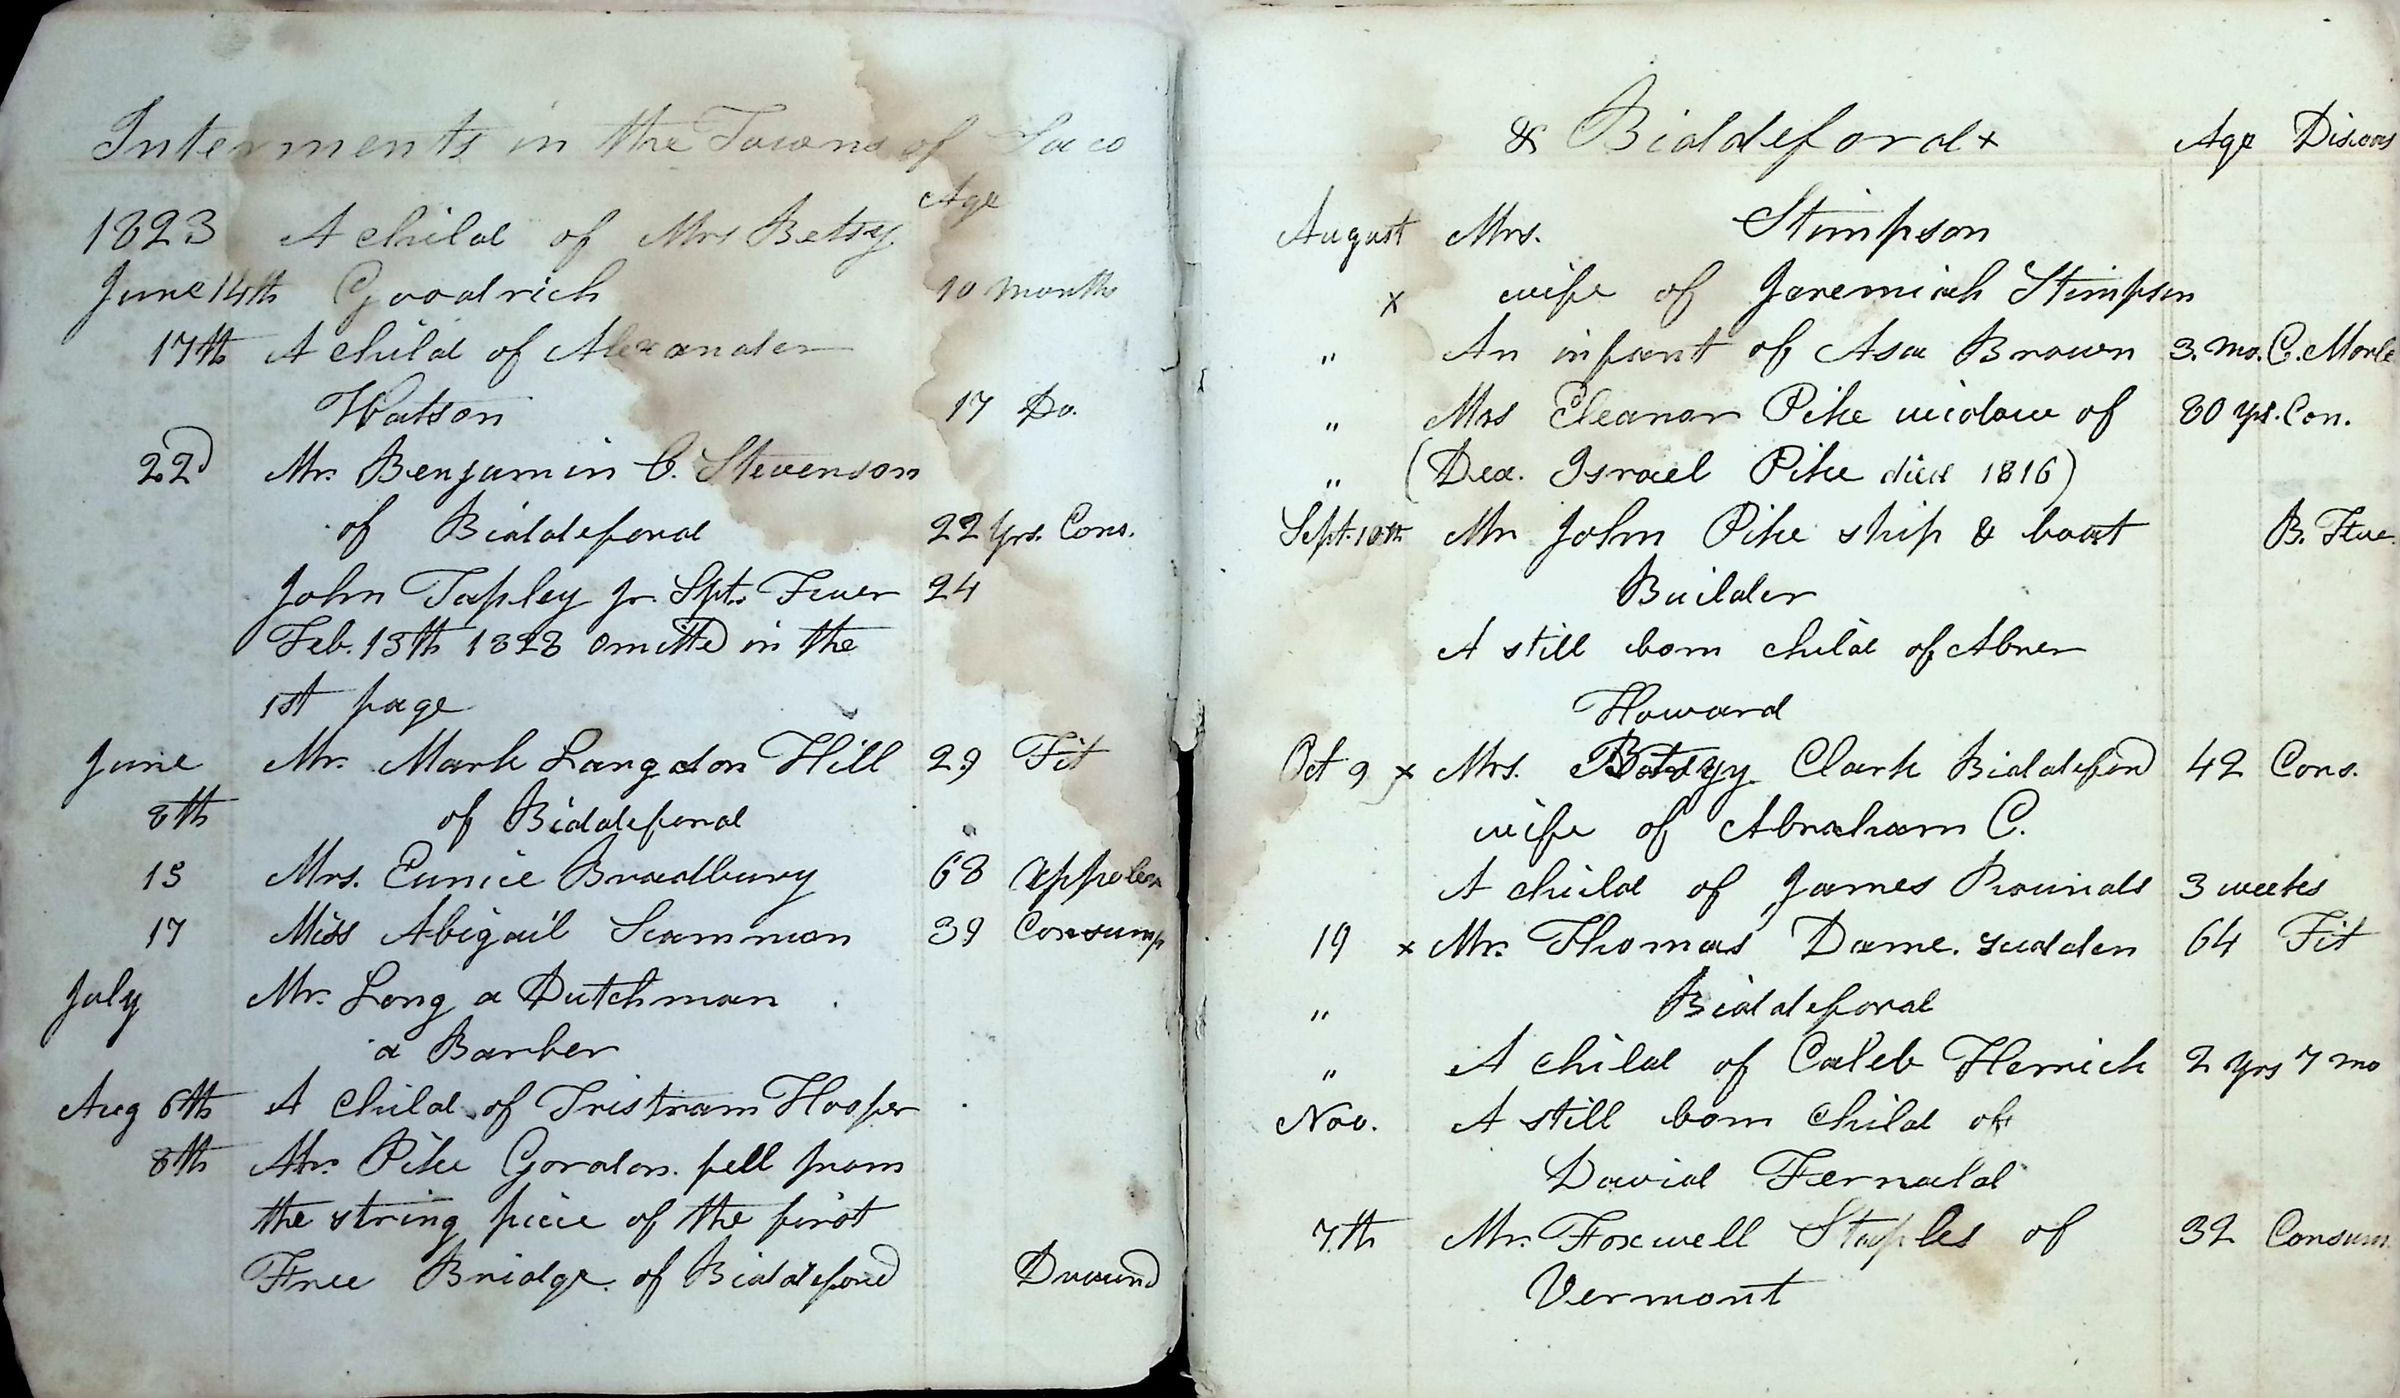 Interments in the Towns of Saco
Age
1823 A child of Mrs Betsy
June 14th Goodrich 10 months
17th A child of Alexander
Watson 17 Do.
22d Mr. Benjamin C. Stevenson
of Biddeford 22 yrs. Cons.
John Tapley jr. Spt. Fever 24
Feb. 13th 1823 omitted in the
1st page
June Mr. Mark Langdon Hill 29 Fit
8th of Biddeford
13 Mrs. Eunice Bradbury 68 Appolex
17 Miss Abigail Scammon 39 Consump
July Mr. Long a Dutchman
a Barber
Aug 6th A Child of Tristram Hooper
8th Mr. Pike Gordon. fell from
the string piece of the first
Free Bridge of Biddeford Dround
& Biddeford x Age Diseas
August Mrs. Stimpson
x wife of Jeremiah Stimpson
" An infant of Asa Brown 3. mo. C. Morb
" Mrs Eleanor Pike widow of 80 yrs. Con.
" (Dea. Israel Pike died 1816)
Sept. 10th Mr John Pike ship & boat B. Feve.
Builder
A still born child of Abner
Howard
Oct 9 x Mrs. Betsyy Clark Biddeford 42 Cons.
wife of Abraham C.
A child of James Rounds 3 weeks
19 x Mr. Thomas Dame. sudden 64 Fit
" Biddeford
" A child of Caleb Herrick 2 yrs 7 mo
Nov. A still born Child of
David Fernald
7th Mr. Foxwell Staples of 32 Consum.
Vermont